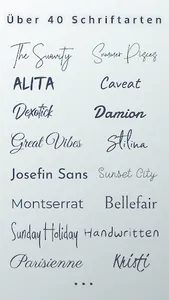 Über 40 Schriftarten
The Suavity Summer Pisces
ALITA Caveat
Dexotick Damion
Great Vibes Stilina
Josefin Sans Sunset City
Montserrat Bellefair
Sunday Holiday Handwritten
Parisienne Kristi
...